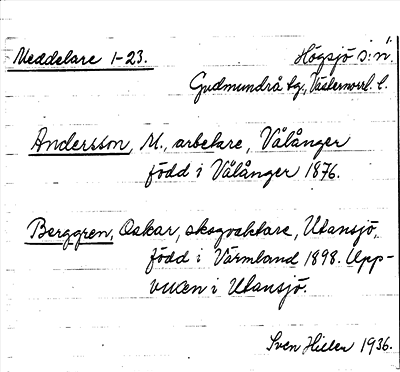 Meddelare 1-23.
Högsjö s:n.
Gudmundrå tg., Västernorrl. l.
Andersson, M., arbetare, Vålånger
född i Vålånger 1876.
Berggren, Oskar, skogvaktare, Utansjö,
född i Värmland 1898. Upp-
vuxen i Utansjö.
Sven Hiller 1936.